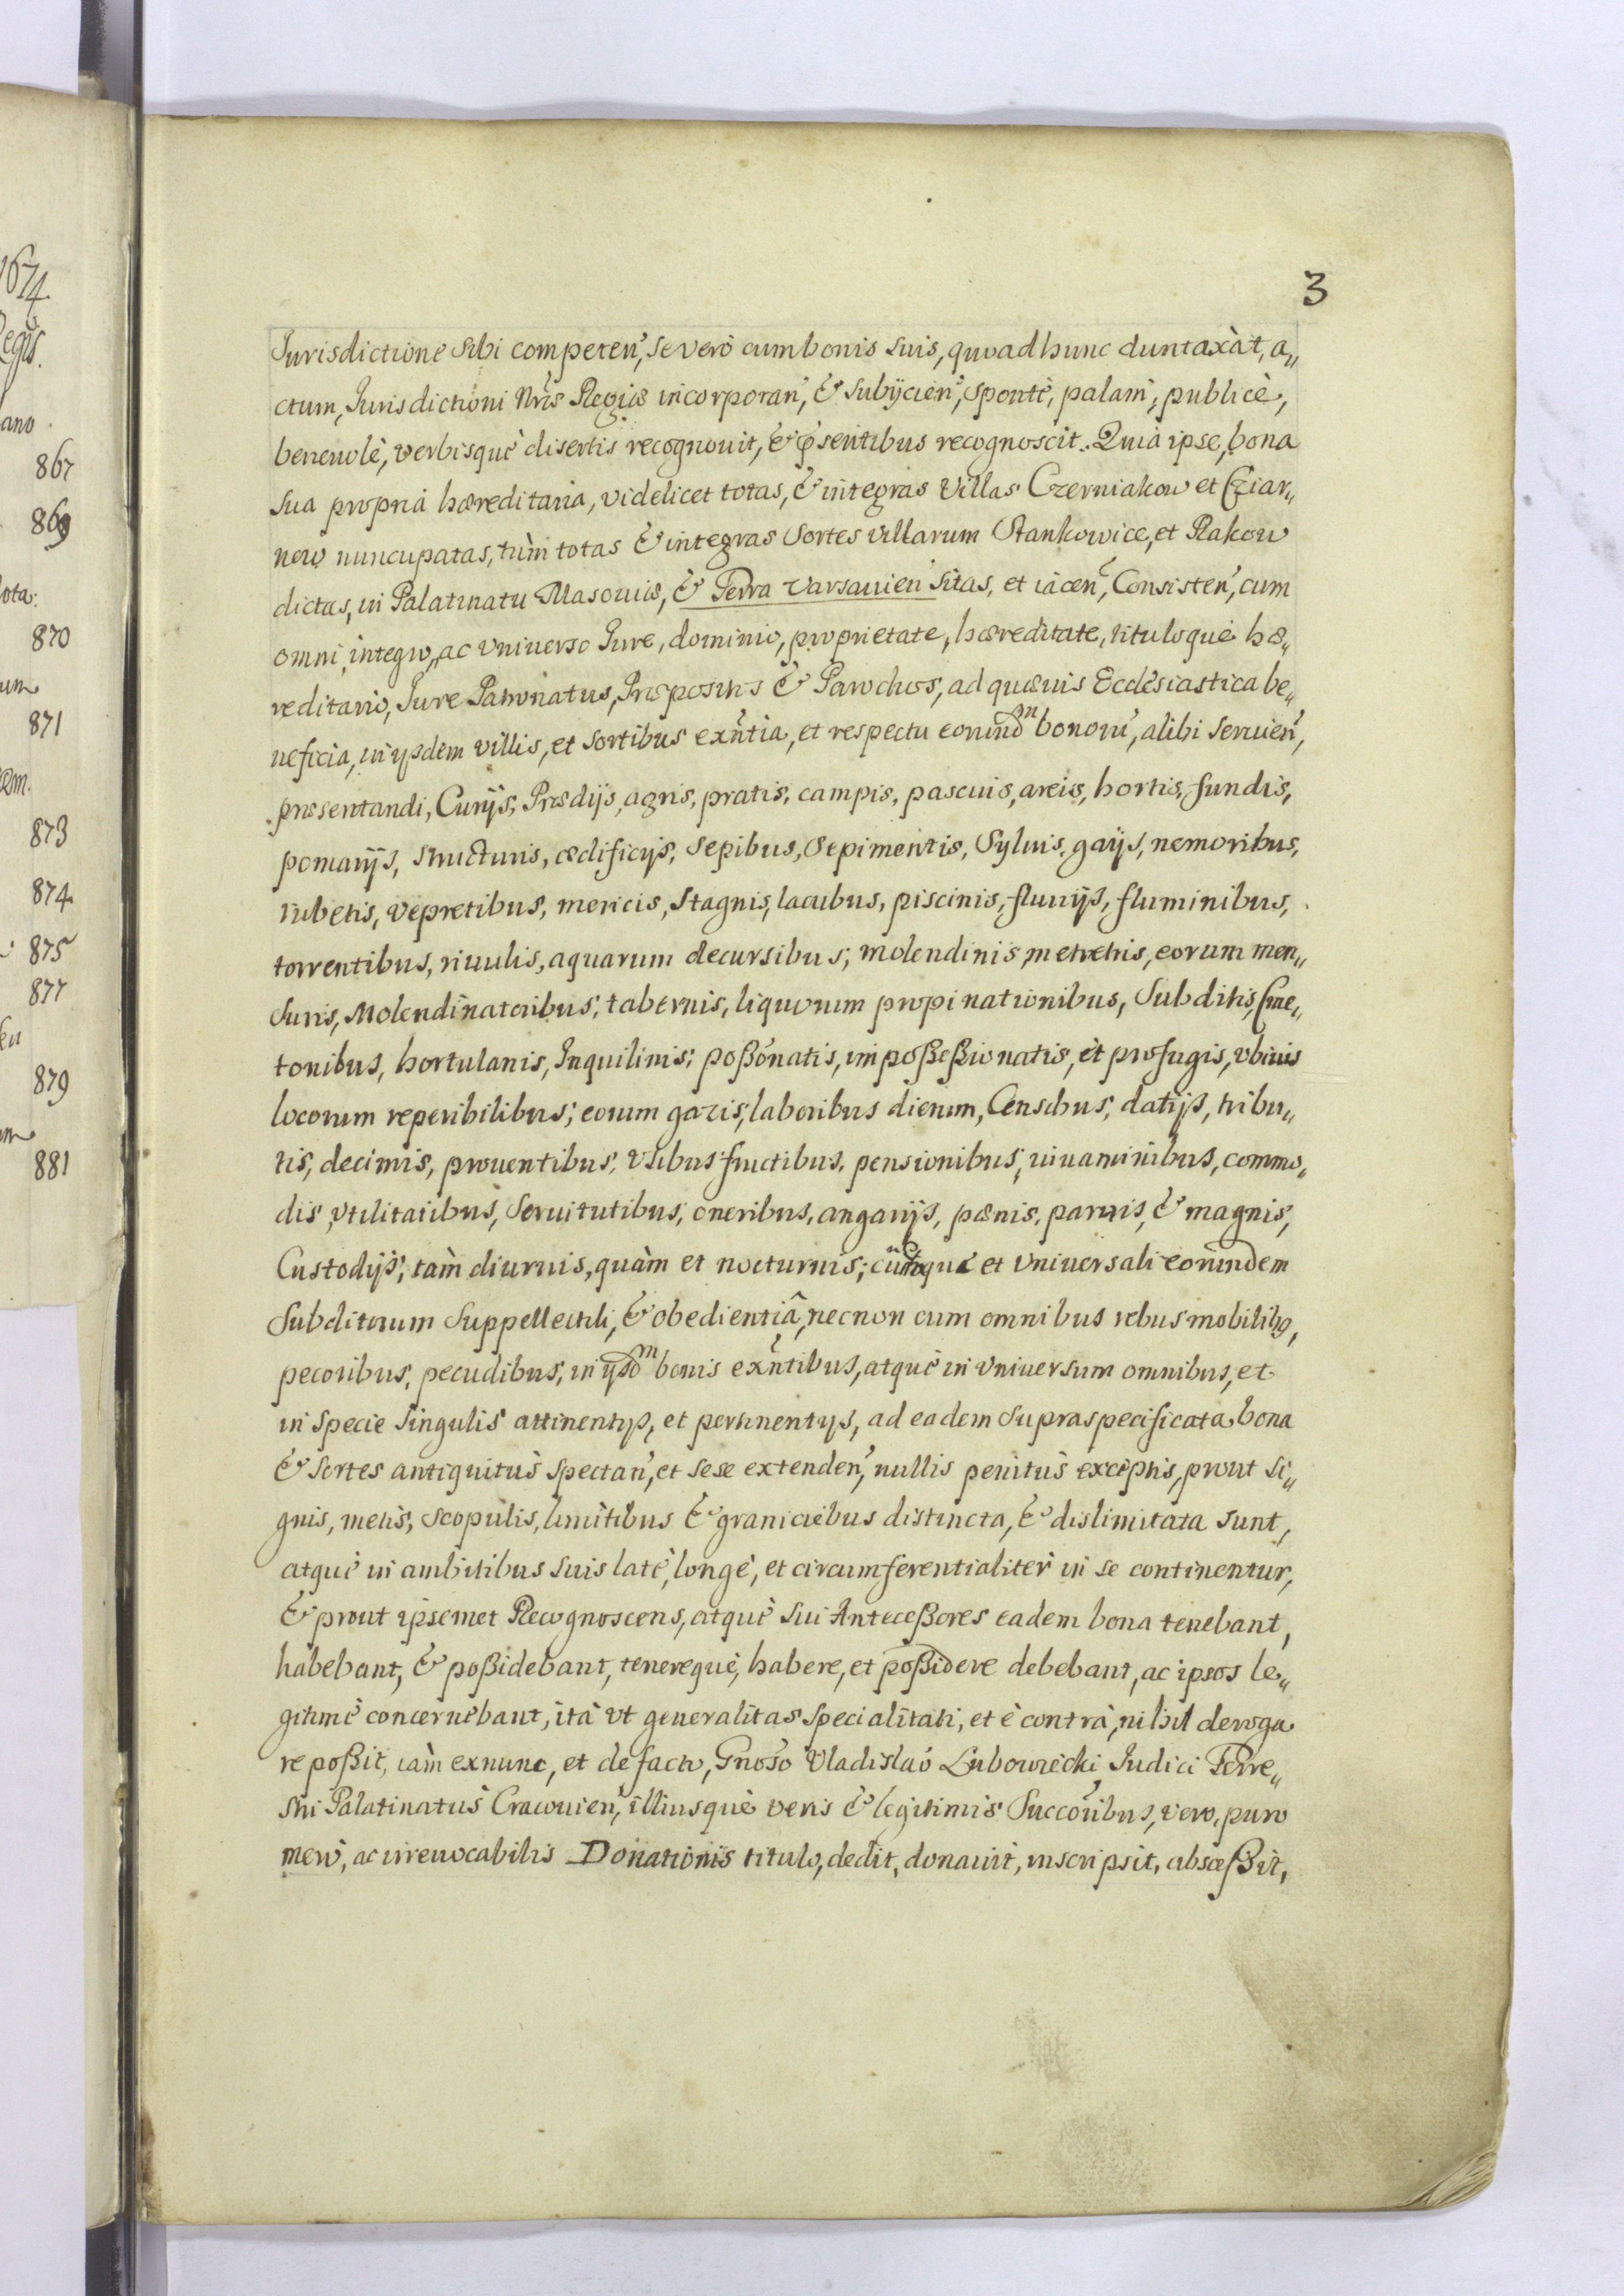 1674.
Regis.
ano.
867
869
ota:
870
um
871
873
874
875
877
879
881
3
Jurisdictione sibi competen̓, se verò cum bonis suis, quoad hunc duntaxàt, a„
ctum, Jurisdictioni Nr̃æ Regiæ incorporan̓, & subÿcien̓, sponte, palam, publicè,
beneuolè, verbisquè disertis recognouit, & p̃sentibus recognoscit. Quia ipse, bona
sua propria hæreditaria, videlicet totas, & integras Villas Czerniakow et Cziar„
now nuncupatas, tùm totas & integras Sortes villarum Stankowice, et Rakow
dictas, in Palatinatu Masouiæ, & Terra Varsauien̓ sitas, et iacen̓, Consisten̓, cum
omni, integro, ac Vniuerso Jure, dominio, proprietate, hæreditate, tituloquè hæ„
reditario, Jure Patronatus, Præpositos & Parochos, ad quæuis Ecclesiastica be„
neficia, in ÿsdem villis, et Sortibus exñtia, et respectu eorund͠m bonorũ, alibi seruien̓,
præsentandi, Curÿs, Prædÿs, agris, pratis, campis, pascuis, areis, hortis, fundis,
pomarÿs, structuris, ædificÿs, sepibus, Sepimentis, Syluis, gaÿs, nemoribus,
rubetis, vepretibus, mericis, Stagnis, lacubus, piscinis, fluuÿs, fluminibus,
torrentibus, riuulis, aquarum decursibus, molendinis, metretis, eorum men„
suris, Molendinatoribus, tabernis, liquorum propinationibus, Subditis, Cme„
tonibus, hortulanis, Inquilinis, poßonatis, impoßeßionatis, èt profugis, vbiuis
locorum reperibilibus, eorum gazis, laboribus dierum, Censibus, datÿs, tribu„
tis, decimis, prouentibus, Vsibus fructibus, pensionibus, iuuaminibus, commo„
dis, vtilitatibus, Seruitutibus, oneribus, angarÿs, pænis, paruis, & magnis,
Custodÿs, tàm diurnis, quàm et nocturnis; et Vniuersali eorundem
Subditorum Suppellectili, & obedientiâ, necnon cum omnibus rebus mobilibꝰ,
pecoribus, pecudibus, in ÿsd͠m bonis exñtibus, atquè in Vniuersum omnibus, et
in specie singulis attinentÿs, et pertinentÿs, ad eadem supraspecificata bona
& Sortes antiquitùs spectan̓, et sese extenden̓, nullis penitùs exceptis, prout si„
gnis, metis, scopulis, limitibus & granicibus distincta, & dislimitata sunt,
atquè in ambitibus suis latè, longè, et circumferentialitèr in se continentur,
& prout ipsemet Recognoscens, atquè sui Anteceßores eadem bona tenebant,
habebant, & poßidebant, tenerequè, habere, et poßidere debebant, ac ipsos le„
gitimè concernebant, ità Vt generalitas specialitati, et è contrà, nihil deroga
re poßit, iàm exnunc, et de facto, Gñoso Vladislao Lubowiecki Judici Terre„
stri Palatinatùs Cracouien̓, illiusquè veris & legitimis Succoribus, vero, puro
mero, ac irreuocabilis Donationis titulo, dedit, donauit, inscripsit, absceßit,